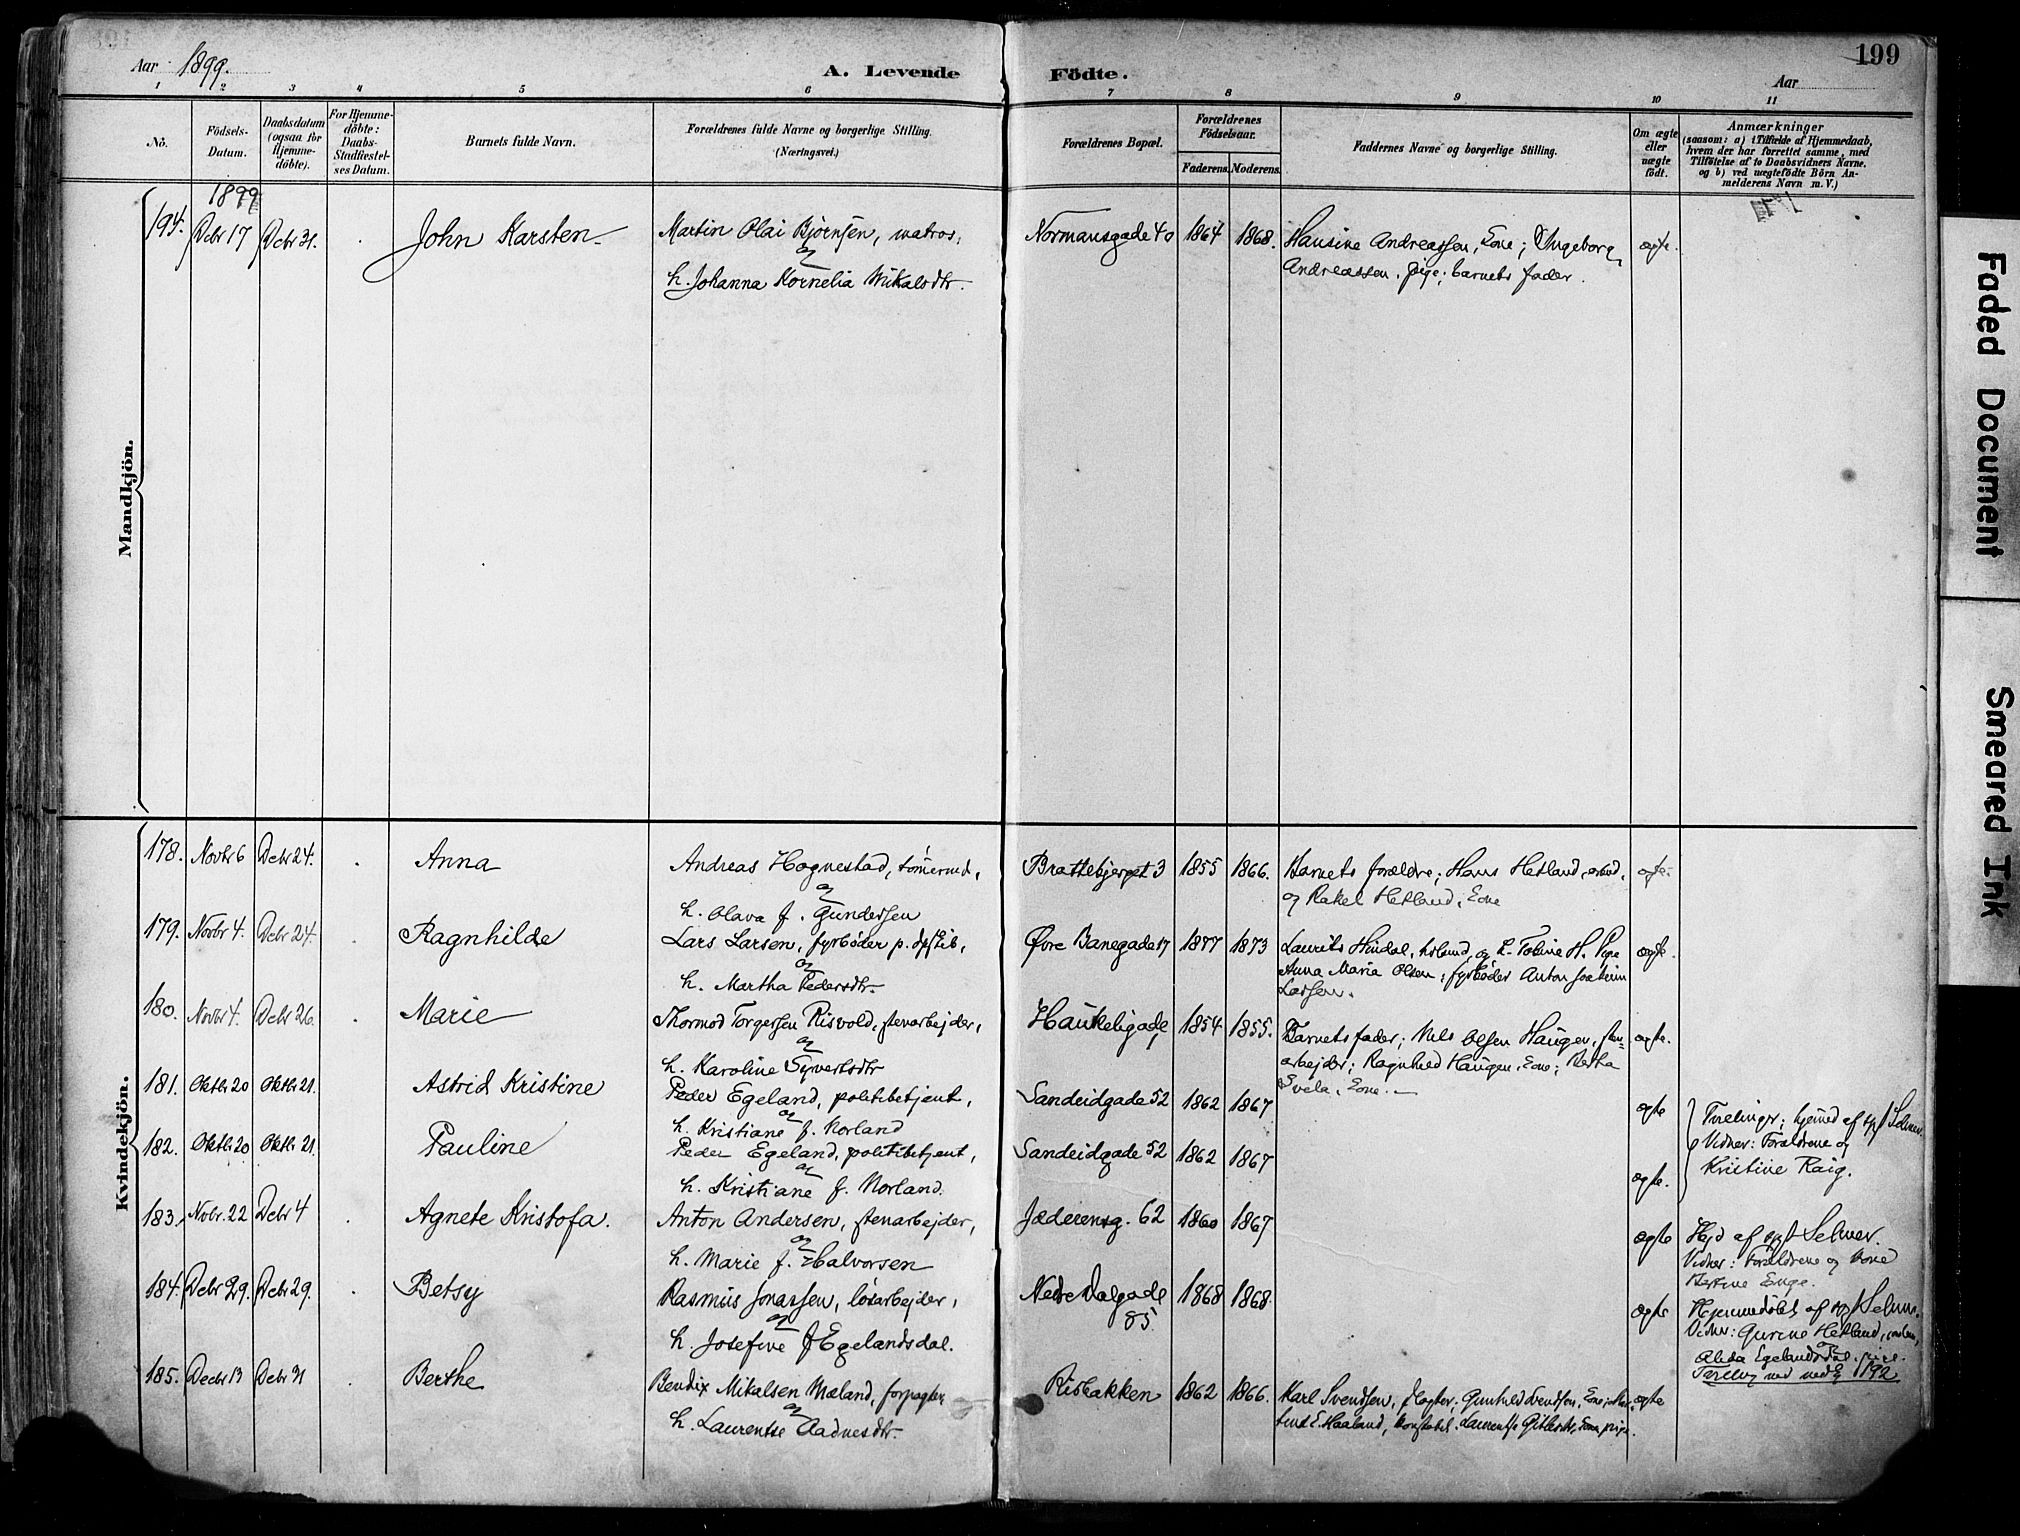 Aar 1899.
A. Levende
Födte.
Aar
199
1 2 3 4 5 6 7 8 9 10 11
No.
Födsels-
Datum.
Daabsdatum
(ogsaa for
Hjemme-
döbte).
For Hjemme-
döbte:
Daabs-
Stadfæstel-
ses Datum.
Barnets fulde Navn.
Forældrenes fulde Navne og borgerlige Stilling.
(Næringsvei.)
Forældrenes Bopæl.
Forældrenes
Födselsaar.
Faderens. Moderens.
Faddernes Navne og borgerlige Stilling.
Om ægte
eller
uægte
födt.
Anmærkninger
(saasom: a) i Tilfælde af Hjemmedaab,
hvem der har forrettet samme, med
Tilföielse af to Daabsvidners Navne,
og b) ved uægtefödte Börn An-
melderens Navn m. V.)
Mandkjön.
1899
194. Debr 17 Debr 31. John Karsten Martin Olai Bjørnsen, matros,
og
h. Johanna Kornelia Mikalsdtr.
Normansgade 40 1864 1868.
Hansine Andreassen, Kone; Ingeborg
Andreassen, pige; barnets fader.
ægte.
Kvindekjön.
178. Novbr 6 Debr 24. Anna Andreas Hognestad, tømermd,
og
h. Olava f. Gundersen
Brattebjerget 3 1855 1866.
Barnets forældre; Hans Hetland, arbmd,
og Rakel Hetland, Kone
ægte.
179. Novbr 4. Debr 24. Ragnhilde Lars Larsen, fyrbøder p. dpskib,
og
h. Martha Pedersdtr.
Øvre Banegade 17 1877 1873
Laurits Hindal, og h. Tobine H. Pige
Anna Maria Olsen; fyrbøder Anton Joakim
Larsen.
ægte.
180. Novbr 4. Debr 26. Marie Thormod Torgersen Risvold, stenarbejder,
og
h. Karoline Syvertsdtr
Haukeligade 1854 1855.
Barnets fader; Nils Olsen Haugen, sten-
arbejder; Ragnhild Haugen, Kone; Bertha
Svela, Kone.
ægte.
181. Oktbr 20 Oktbr 21. Astrid Kristine Peder Egeland, politibetjent,
og
h. Kristiane f. Norland
Sandeidgade 52 1862 1867
ægte
182. Oktbr 20 Oktbr 21. Pauline Peder Egeland, politibetjent,
og
h. Kristiane f. Norland.
Sandeidgade 52 1862 1867
ægte.
Tvillinger; hjemmd af Selmer.
Vidner: Forældrene og
Kristine Raig.
183. Novbr. 22 Debr 4 Agnete Kristofa. Anton Andersen, stenarbejder,
og
h. Marie f. Halvorsen
Jæderensg. 62 1860 1867
ægte
Hjd af Selmer.
Vidner: Forældrene og Kone
Bertine Enge.
184. Debr 29. Debr 29. Betsy Rasmus Jonassen, løsarbejder,
og
h Josefine f Egelandsdal.
Nedre Dalgade
85. 1868 1868.
ægte
Hjemmedøbt af Selmer.
Vidner: Gurine Hetland,
Alida Egelandsdal, pige.
192
185. Decbr 13 Debr 31 Berthe Bendix Mikalsen Mæland, forpagter
og
h. Laurentse Aadnesdtr.
Risbakken 1862 1866.
Karl Svendsen, slagter, Gunhild Svendsen, Kone;
E. Haaland, konstabel.
ægte
Faded Document
Smeared Ink